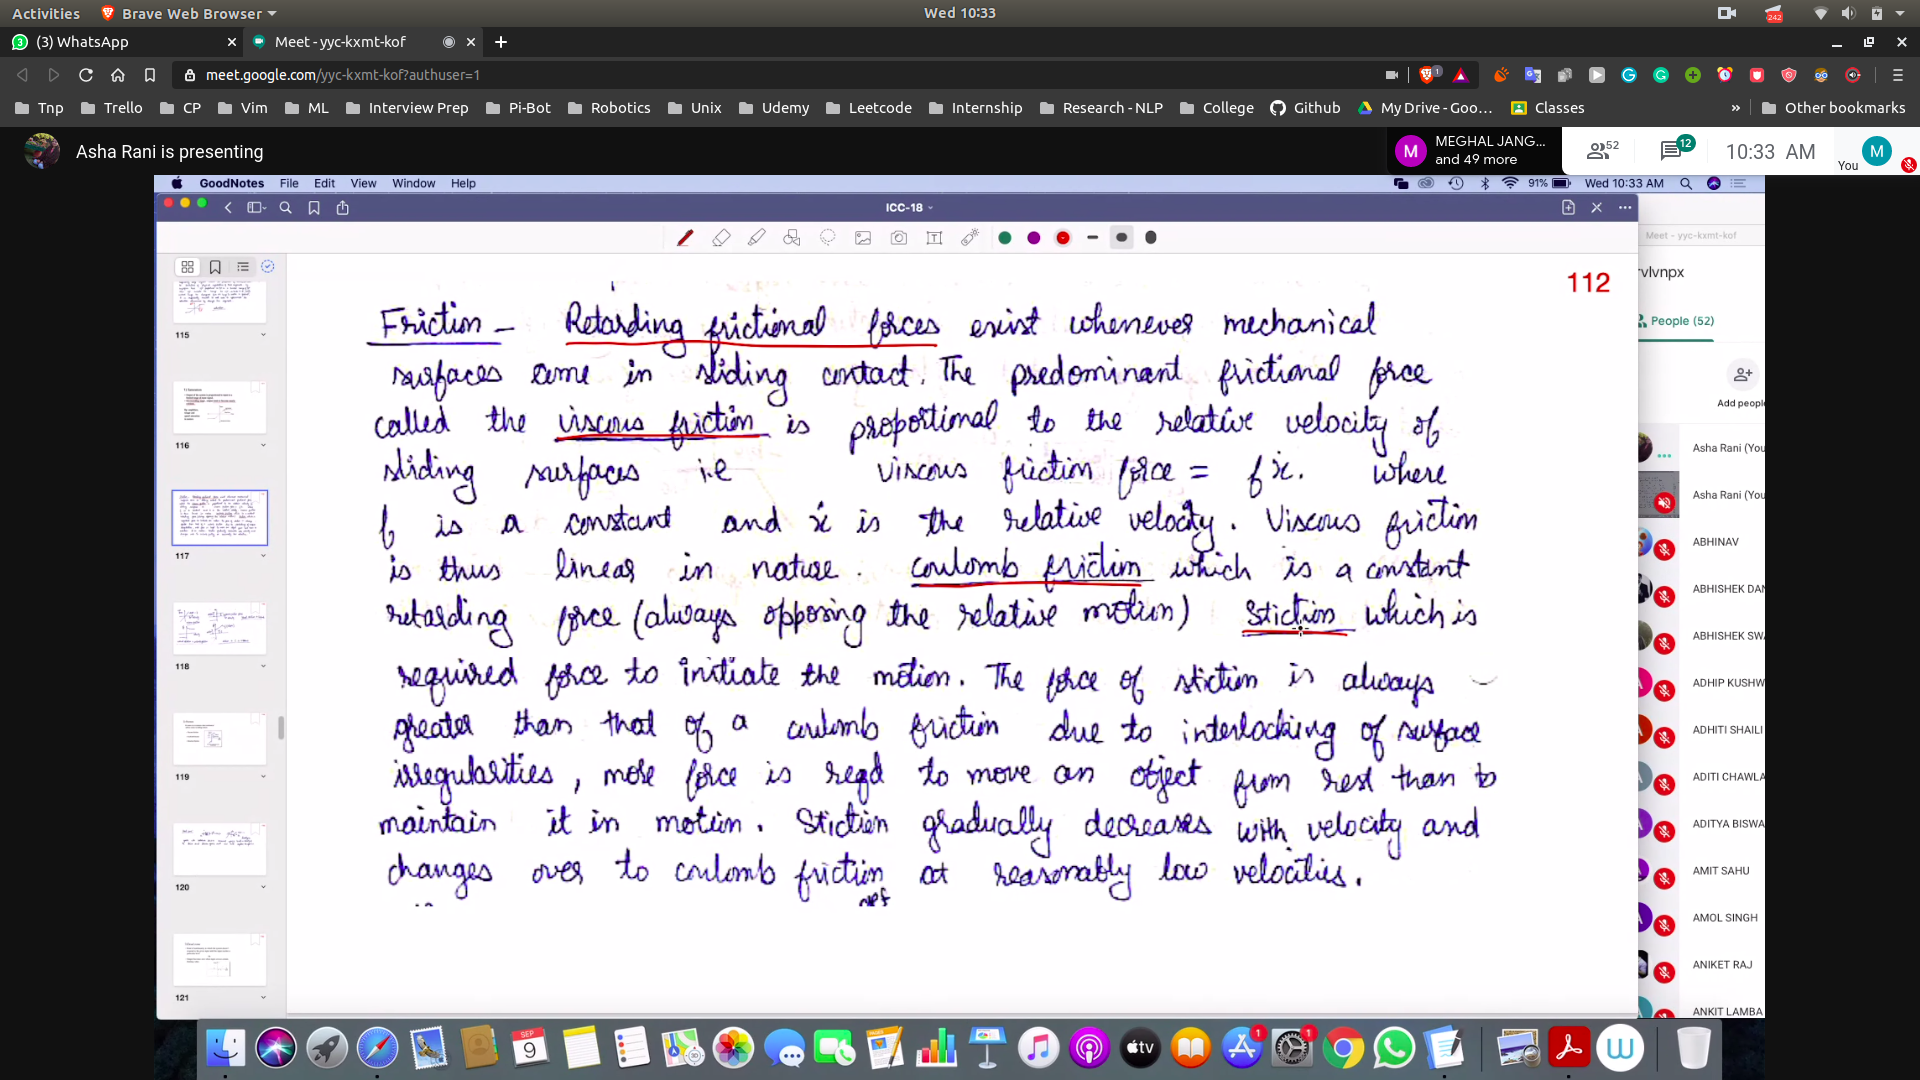 Activities
Brave Web Browser
Wed 10:33
242
(3) WhatsApp
Meet - yyc-kxmt-kof
meet.google.com/yyc-kxmt-kof?authuser=1
1
Tnp
Trello
CP
Vim
ML
Interview Prep
Pi-Bot
Robotics
Unix
Udemy
Leetcode
Internship
Research - NLP
College
Github
My Drive - Goo...
Classes
»
Other bookmarks
Asha Rani is presenting
M
MEGHAL JANG...
and 49 more
52
12
10:33 AM
You
M
GoodNotes File Edit View Window Help
91%
Wed 10:33 AM
ICC-18
Meet - yyc-kxmt-kof
112
Friction - Retarding frictional forces exist whenever mechanical
surfaces come in sliding contact. The predominant frictional force
called the viscous friction is proportional to the relative velocity of
sliding surfaces i.e viscous friction force = fẋ. where
f is a constant and ẋ is the relative velocity. Viscous friction
is thus linear in nature. coulomb friction which is a constant
retarding force (always opposing the relative motion) Stiction which is
required force to initiate the motion. The force of stiction is always
greater than that of a coulomb friction due to interlocking of surface
irregularities, more force is reqd to move an object from rest than to
maintain it in motion. Stiction gradually decreases with velocity and
changes over to coulomb friction at reasonably low velocities.
115
116
117
118
119
120
121
rvlvnpx
People (52)
Add people
Asha Rani (You
Asha Rani (You
ABHINAV
ABHISHEK DAN
ABHISHEK SWA
ADHIP KUSHW
ADHITI SHAILI
ADITI CHAWLA
ADITYA BISWA
AMIT SAHU
AMOL SINGH
ANIKET RAJ
ANKIT LAMBA
SEP
9
tv
1
1